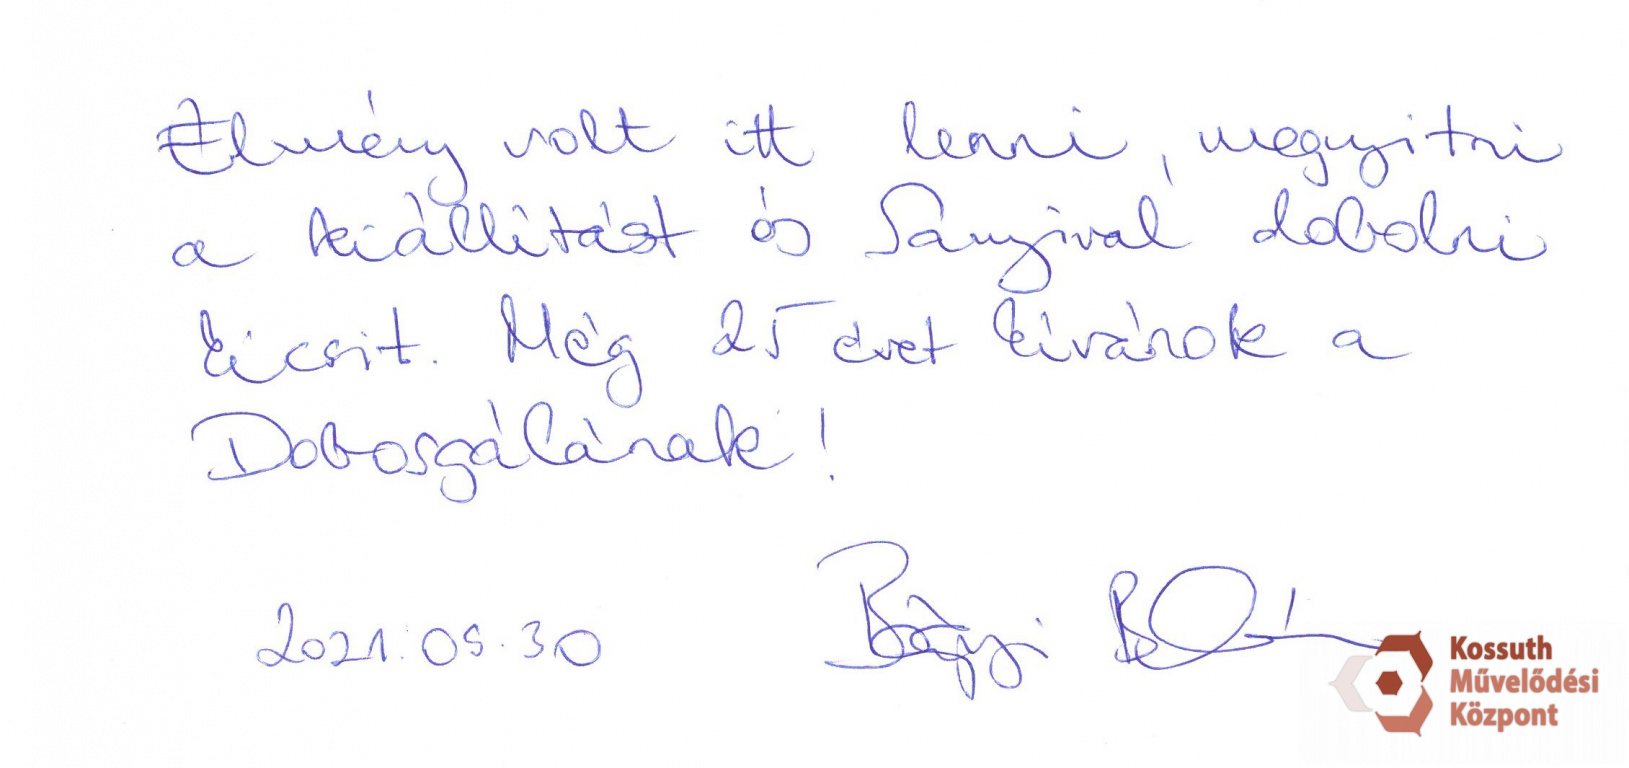 Élmény volt itt lenni, megnyitni
a kiállítást és Sanyival dobolni
kicsit. Még 25 évet kívánok a
Dobosgálának!
2021.09.30
Kossuth
Művelődési
Központ